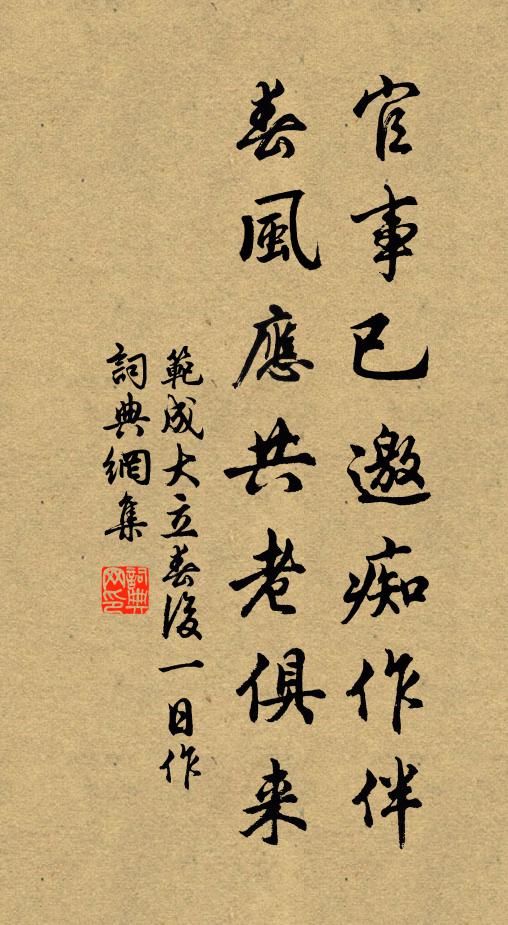 官事已邀痴作伴
春風應共老俱来
範成大立春後一日作
詞典網集
詞典网印